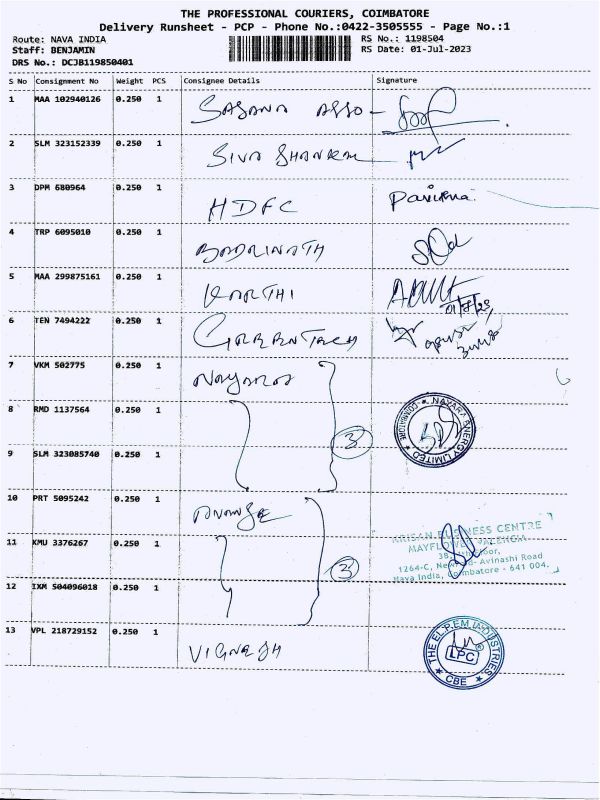 THE PROFESSIONAL COURIERS, COIMBATORE
Delivery Runsheet - PCP - Phone No.:0422-3505555 - Page No.:1
Route: NAVA INDIA RS No.: 1198504
Staff: BENJAMIN RS Date: 01-Jul-2023
DRS No.: DCJB119850401
S No Consignment No Weight PCS Consignee Details Signature
1 MAA 102940126 0.250 1 SASANA ASSO
2 SLM 323152339 0.250 1 SIVA SHANKAR
3 DPM 680964 0.250 1 HDFC
4 TRP 6095010 0.250 1 BADRINATH
5 MAA 299875161 0.250 1 KARTHI
6 TEN 7494222 0.250 1 GREENTECH
7 VKM 502775 0.250 1 NAYARA
8 RMD 1137564 0.250 1 3 NAYARA ENERGY LIMITED COIMBATORE
9 SLM 323085740 0.250 1
10 PRT 5095242 0.250 1
11 KMU 3376267 0.250 1 3 BUSINESS CENTRE
MAYFLOWER VALENCIA
1264-C, Avinashi Road
Nava India, Coimbatore - 641 004.
12 IXM 504096018 0.250 1
13 VPL 218729152 0.250 1 VIGNESH THE EL.P.EM.INDUSTRIES LPC ® CBE